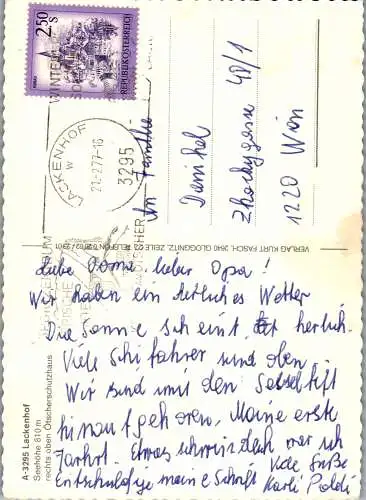 2.50
S
REPUBLIK ÖSTERREICH
WINTER
LACKENHOF
W
21.-2.77-16
3295
An Familie
Zschokkegasse 40/1
1220 Wien
VERLAG KURT FASCH, 2640 GLOGGNITZ, ZEILE 22, TELEFON 0 26 62 / 2901
A-3295 Lackenhof
Seehöhe 810 m
rechts oben Ötscherschutzhaus
Liebe Oma lieber Opa!
Wir haben ein herliches Wetter
Die Sonne scheint herlich.
Viele Schifahrer sind oben
Wir sind mit den Sesselift
hinaufgefahren. Meine erste
Fahrt. Etwas schwindlich war ich
Entschuldige meine Schrift Viele Grüße
Karli Poldi